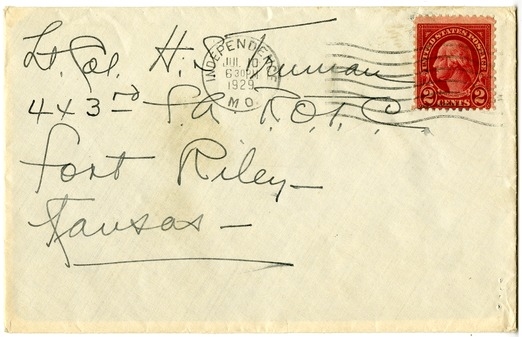 Lt. Col. H. S. Truman
443rd F.A. R.O.T.C.
Fort Riley—
Kansas—
INDEPENDENCE
JUL 10
630PM
1929
MO.
UNITED STATES POSTAGE
2 CENTS 2